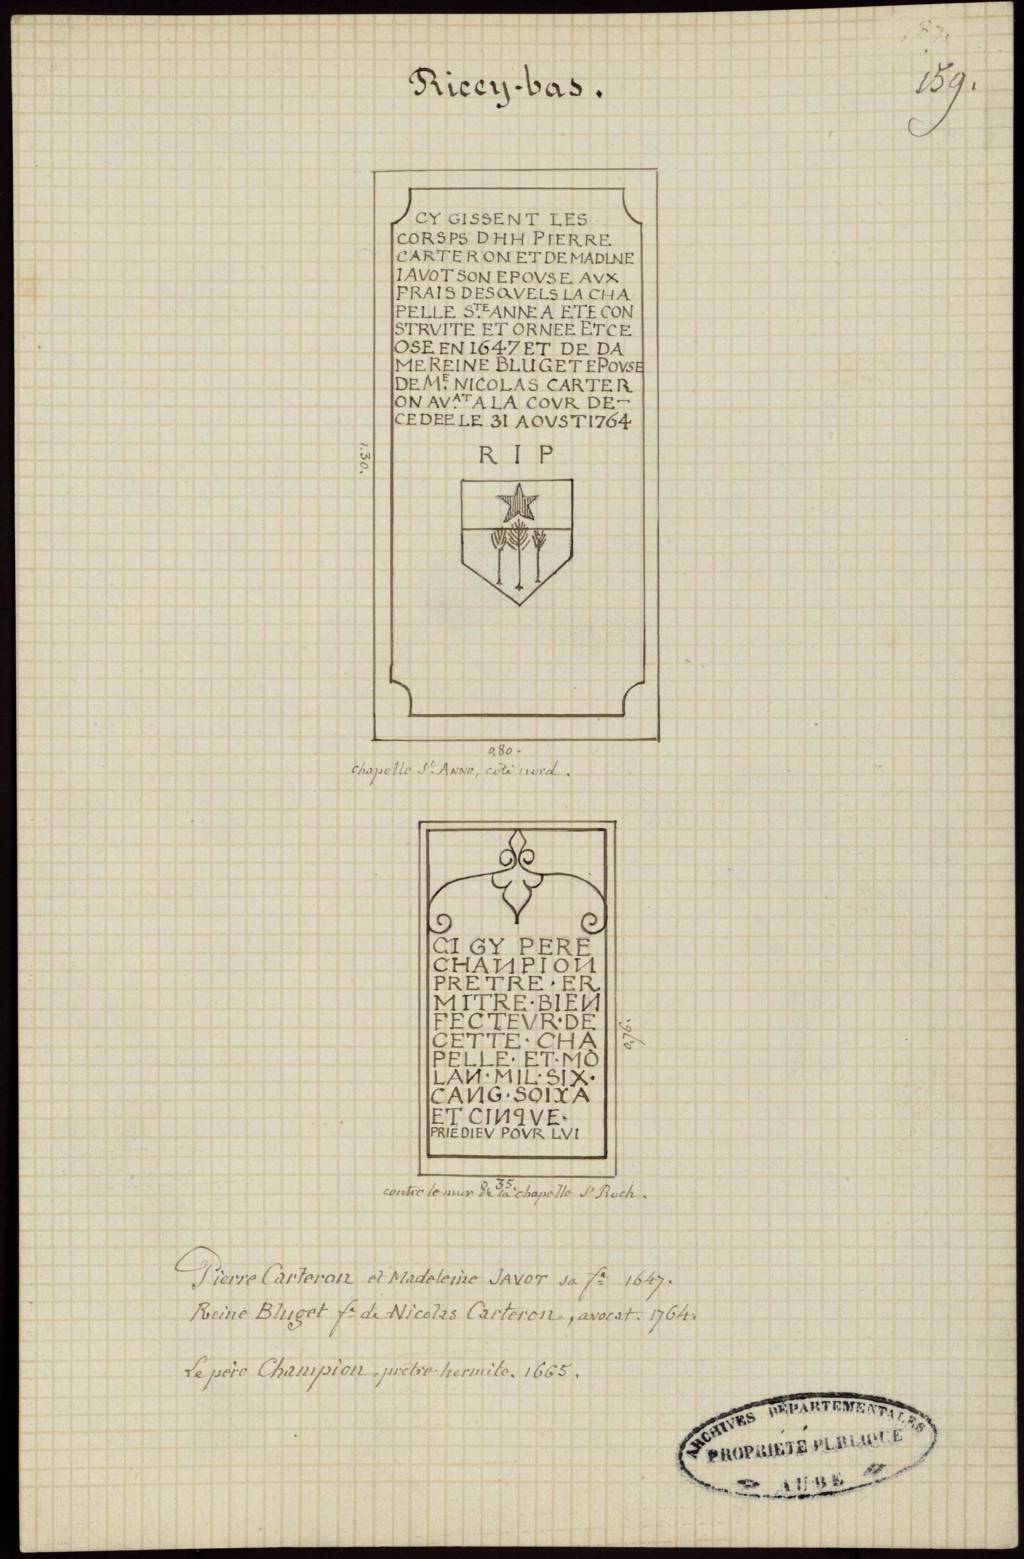 159.
Riccy-bas.
CY GISSENT LES
CORSPS DHH PIERRE
CARTERON ET DE MADLNE
IAVOT SON EPOVSE AVX
FRAIS DESQVELS LA CHA
PELLE STE ANNE A ETE CON
STRVITE ET ORNEE ET CE
OSE EN 1647 ET DE DA
ME REINE BLUGET EPOVSE
DE ME NICOLAS CARTER
ON AVAT A LA COVR DE-
CEDEE LE 31 AOVST 1764
R I P
1.30.
0,80.
chapelle Ste ANNE, côté nord.
CI GY PERE
CHANPION
PRETRE · ER
MITRE · BIEN
FECTEVR · DE
CETTE · CHA
PELLE · ET · MÒ
LAN · MIL · SIX ·
CANG · SOIXA
ET CINQVE ·
PRIE DIEV POVR LVI
0,76.
0,35.
contre le mur de la chapelle St Roch.
Pierre Carteron et Madeleine JAVOT sa fe 1647.
Reine Bluget fe de Nicolas Carteron, avocat. 1764.
Le père Champion, prêtre-hermite. 1665.
ARCHIVES DÉPARTEMENTALES
PROPRIÉTÉ PUBLIQUE
AUBE